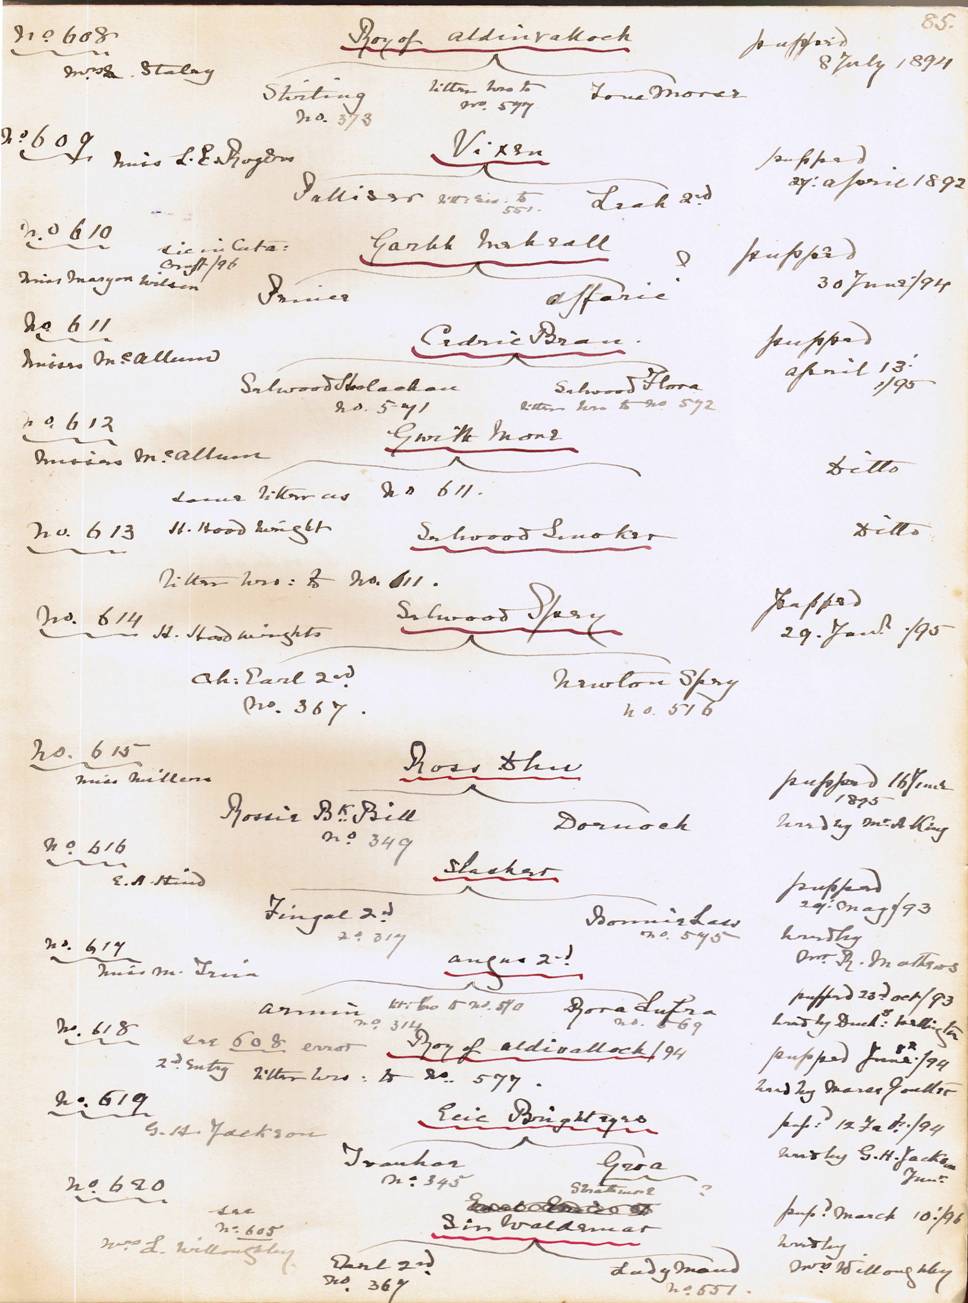 85.
No. 608 Roy of Aldivalloch pupped
Mrs. Staley 8 July 1894
Stirling litter bro to Iona Morar
No. 373 No. 577
No. 609 Vixen pupped
Miss L. E. Rogers 27. April 1892
Palliser 551. Leah 2nd
No. 610 Garbh pupped
see in Cata:
Cruft/96
Miss Maryon Wilson 30 June/94
Prince Affaric ?
No. 611 Cedric Bran. pupped
Misses McAllum April 13.
1/95
Selwood Strolachan Selwood Flora
No. 571 litter bro to No 572
No. 612 Gwith Mone
Misses McAllum Ditto
same litter as No 611.
No. 613 H. Hood Wright Selwood Smoker Ditto
litter bro: to No. 611.
No. 614 Selwood Spey pupped
H. Hood Wrights 29. Jany. /95
Ch: Earl 2nd Newton Spey
No. 367. No. 516
No. 615 Ross Dhu
Miss Millers pupped 16 June
1895
Rossie Bk. Bill Dornoch bred by Mr. A King
No 349
No 616 Slasher
E. A. Hind pupped
29. May/93
Fingal 2nd Bonnie Law bred by
No. 317 No. 575 Mr. R. Mathews
No. 617 Angus 2nd
Miss M. pupped 23d Oct/93
Armin Rora Lufra bred by Duchs. Wellington
No 314 No. 569
No. 618 see 608 error Roy of Aldivalloch/94 pupped June /94
2nd Entry litter bro: to No. 577. bred by
No. 619 Eric Brighteyes pup.d 12 /94
G. H. Jackson bred by G. H. Jackson
Junr.
Ivanhoe Groa
No 345 Strathmore ?
No 620
see
No. 605
Sir Waldemar pup.d March 10:/96
Mrs L. Willoughby bred by
Earl 2nd Lady Maud Mrs Willoughby
No. 367 No. 551.